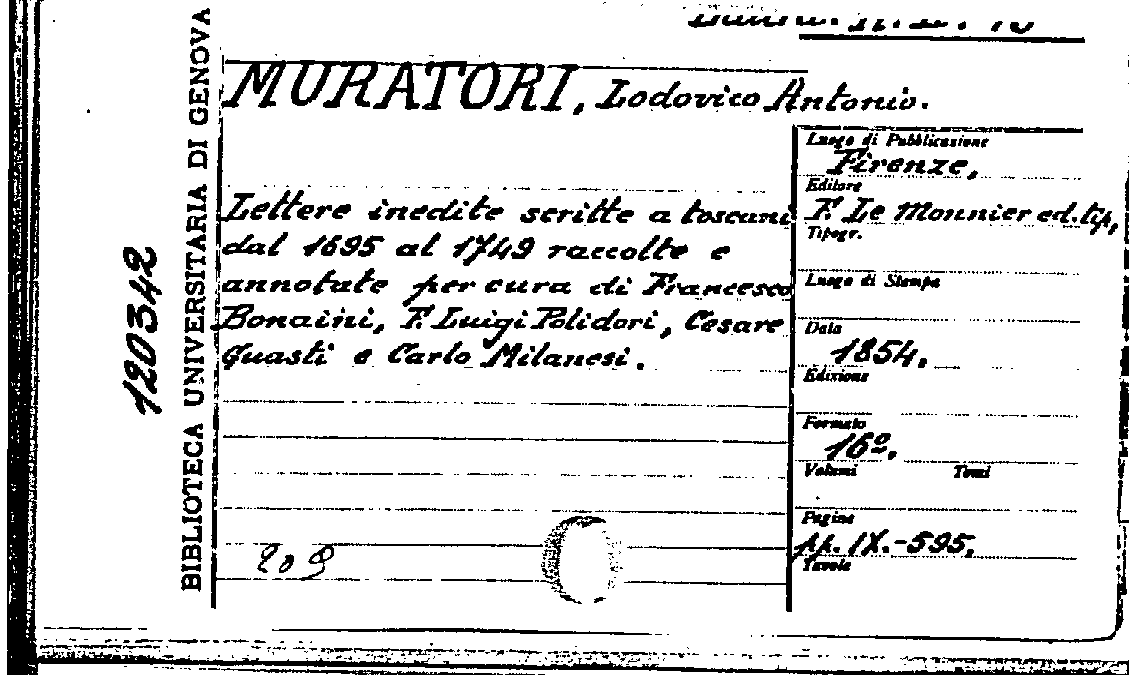 MURATORI, Lodovico Antonio.
BIBLIOTECA UNIVERSITARIA DI GENOVA
120342
Lettere inedite scritte a toscani
dal 1695 al 1749 raccolte e
annotate per cura di Francesco
Bonaini, F. Luigi Polidori, Cesare
Guasti e Carlo Milanesi.
209
Luogo di Pubblicazione
Firenze,
Editore
F. Le Monnier ed. tip,
Tipogr.
Luogo di Stampa
Data
1854.
Edizione
Formato
16º.
Volumi Tomi
Pagine
pp. IX.-595.
Tavole